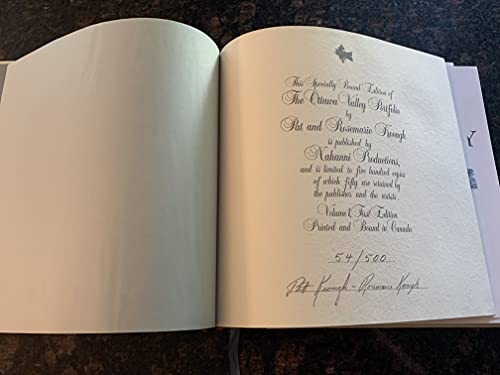 This Specially Bound Edition of
The Ottawa Valley Portfolio
by
Pat and Rosemarie Keough
is published by
Nahanni Productions,
and is limited to five hundred copies
of which fifty are retained by
the publisher and the artists.
Volume 1, First Edition
Printed and Bound in Canada
54/500
Pat Keough - Rosemarie Keough
Y